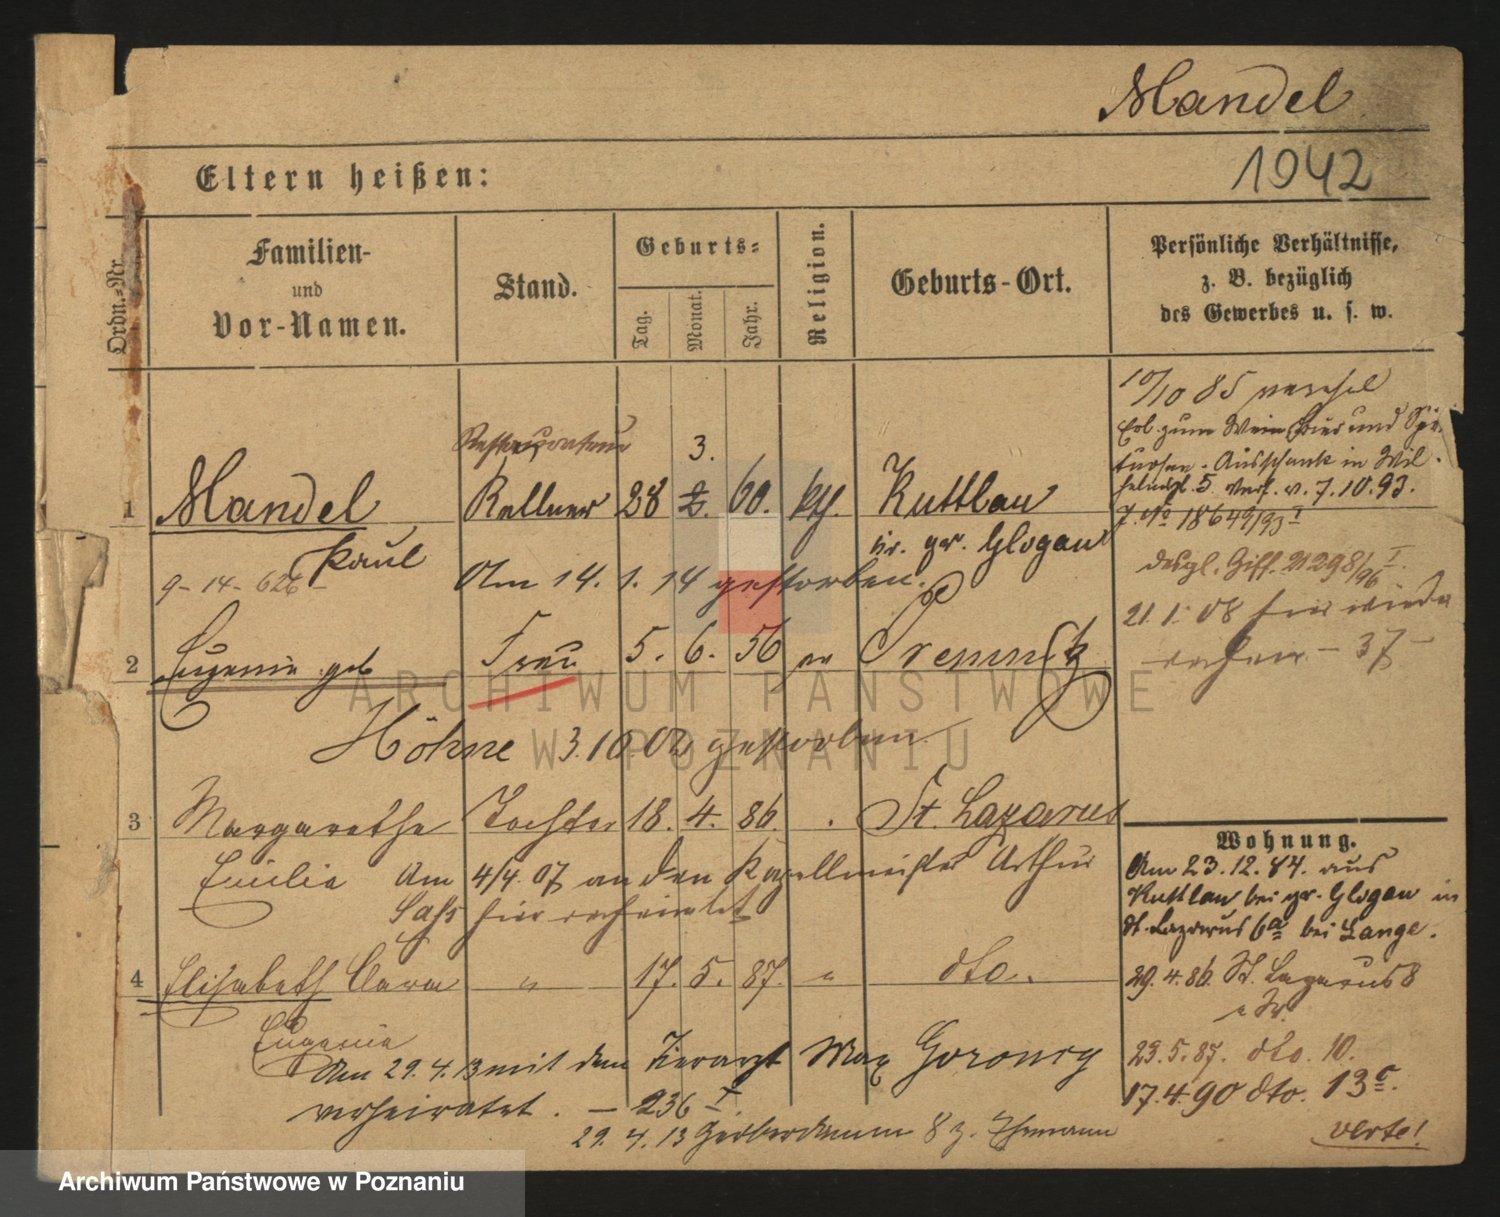 Mandel
1942
Eltern heißen:
Ordn.-Nr.
Familien-
und
Vor-Namen.
Stand.
Geburts-
Tag.
Monat.
Jahr.
Religion.
Geburts-Ort.
Persönliche Verhältnisse,
z. B. bezüglich
des Gewerbes u. s. w.
10/10 85
Restaurateur
3.
1 Mandel Kellner 28 2. 60. kth. Kuttlau
Paul
kr. gr. Glogau
9-14-626-
Am 14. 1. 14 gestorben.
Erl. zum Wein Bier und Spi-
tuosen-Ausschank in Wil-
helmspl. 5. Verf. v. 7.10.93.
J. No 18649/93 I
desgl. Giff. 21298/96 I.
21. 1. 08 hier wieder
- 37 -
2 Eugenie geb Frau 5. 6. 56 ev Premnitz
Höhne 3.10.02 gestorben
3 Margarethe Tochter 18. 4. 86. St. Lazarus
Emilie Am 4/4. 07 an den Kapellmeister Arthur
Sass hier verheiratet
4 Elisabeth Clara " 17. 5. 87. " dto.
Eugenie
Am 29. 4. 13 mit dem Tierarzt Max Goroncy
verheiratet. - 236 I.
29. 4. 13 Gerberdamm 8 z. Ehemann
Wohnung.
Am 23. 12. 84. aus
Kuttlau bei gr. Glogau in
St. Lazarus 6a bei Lange.
29. 4. 86. St. Lazarus 8
23. 5. 87. dto. 10.
17. 4. 90 dto. 13c.
verte!
ARCHIWUM PAŃSTWOWE
W POZNANIU
Archiwum Państwowe w Poznaniu